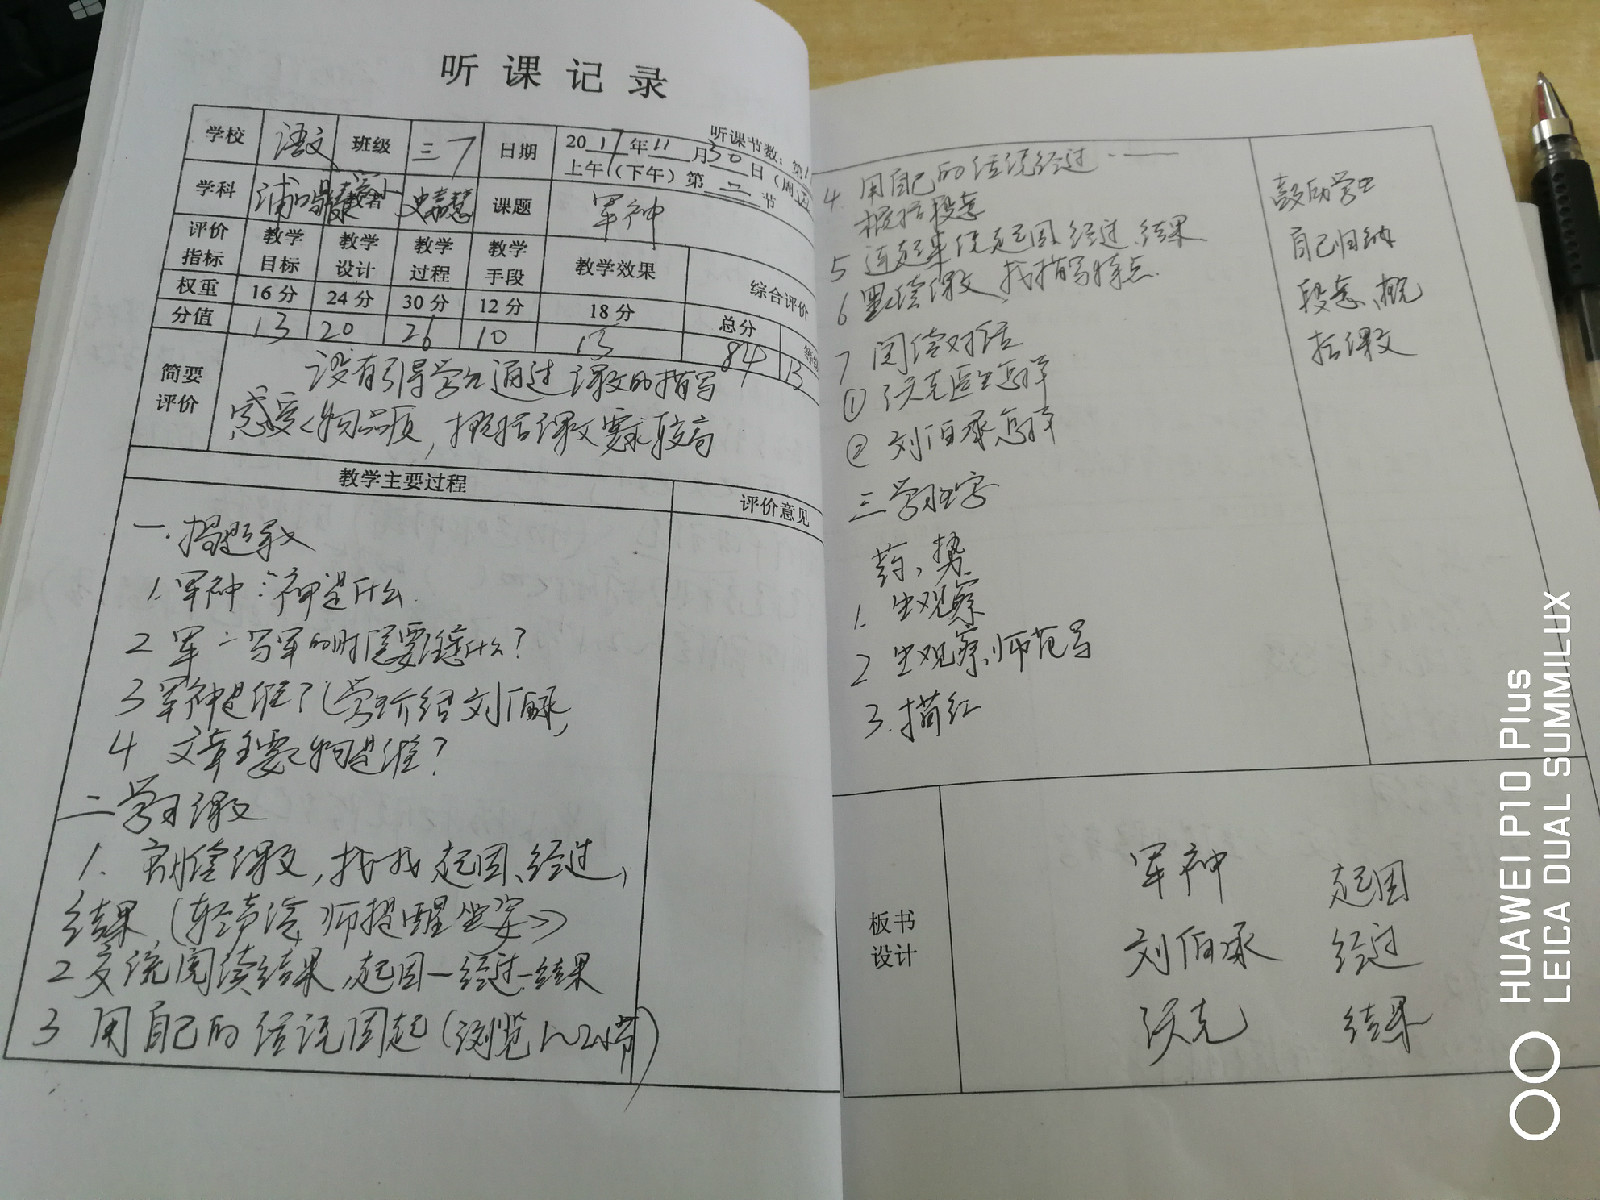 听课记录
听课节数：第
学校 语文 班级 三7 日期 2017年11月30日（周
上午（下午）第二节
学科 执教者 史嘉慧 课题 军神
评价指标 教学目标 教学设计 教学过程 教学手段 教学效果 综合评价
权重 16分 24分 30分 12分 18分 总分
分值 13 20 26 10 15 84 B
简要评价
没有引导学生通过课文的描写
感受人物品质，概括课文要求较高
教学主要过程 评价意见
一.揭题导入
1.军神：神是什么
2 军－写军的时候要注意什么？
3 军神是谁？（学生介绍刘伯承，
4 文章主要人物是谁？
二学习课文
1. 朗读课文，找找起因、经过、
结果（轻声读，师提醒坐姿）
2 交流阅读结果，起因－经过－结果
3 用自己的话说因起（浏览1~2小节）
4. 用自己的话说经过……
概括段意
5 连起来说起因、经过、结果
6 默读课文，找描写特点
7 阅读对话
① 沃克医生怎样
② 刘伯承怎样
三学习生字
药、势
1. 生观察
2 生观察、师范写
3.描红
鼓励学生
自己归纳
段意、概
括课文
板书设计
军神 起因
刘伯承 经过
沃克 结果
HUAWEI P10 Plus
LEICA DUAL SUMMILUX